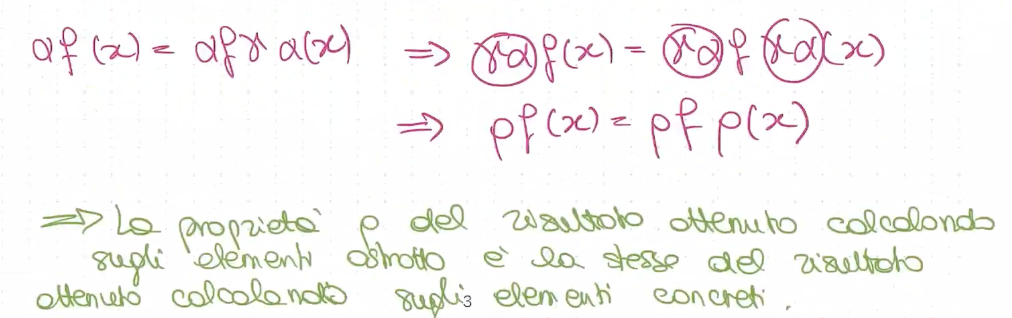 αf(x) = αfγα(x) ⇒ γαf(x) = γαfγα(x)
⇒ ρf(x) = ρfρ(x)
=> La proprietà ρ del risultato ottenuto calcolando
sugli elementi astratto è la stesse del risultato
ottenuto calcolando sugli elementi concreti.
3